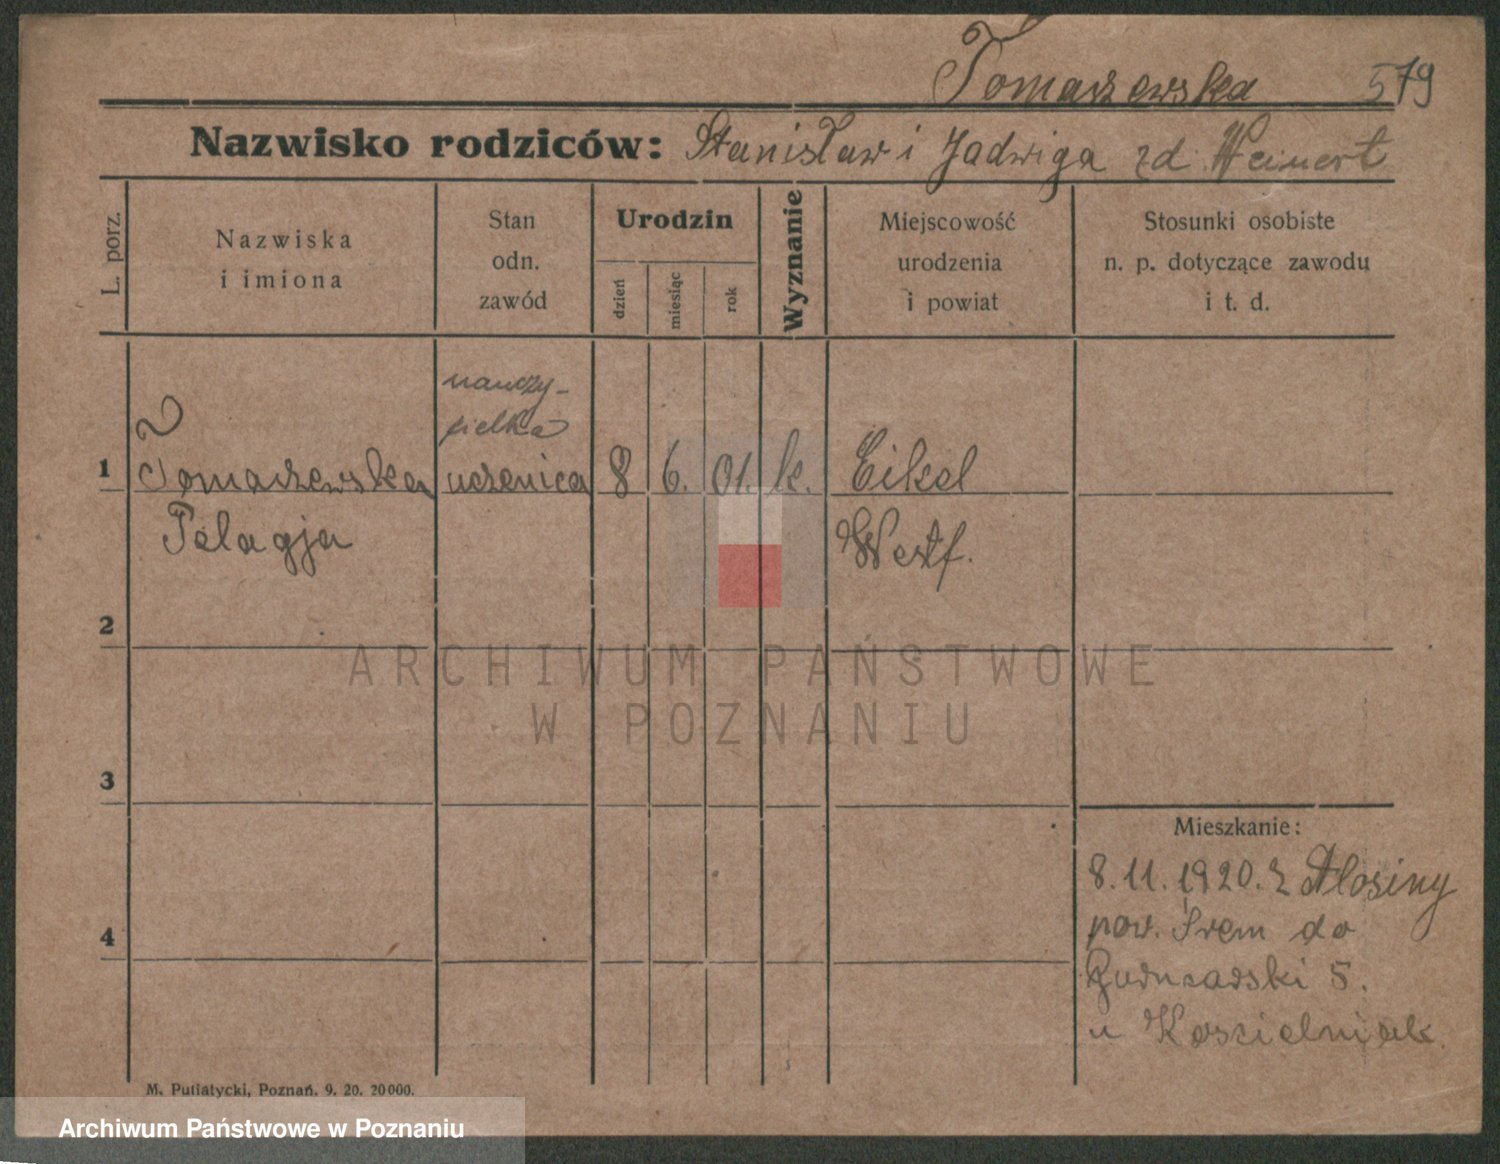 Tomaszewska 579
Nazwisko rodziców: Stanisław i Jadwiga zd. Weinert
L. porz.
Nazwiska
i imiona
Stan
odn.
zawód
Urodzin
dzień
miesiąc
rok
Wyznanie
Miejscowość
urodzenia
i powiat
Stosunki osobiste
n. p. dotyczące zawodu
i t. d.
nauczy-
cielka
1 Tomaszewska uczenica 8 6. 01. k. Eikel
Pelagja Westf.
2
3
4
Mieszkanie:
8.11.1920. z
pow. Śrem do
5.
u Koscielniak.
M. Putiatycki, Poznań. 9. 20. 20000.
ARCHIWUM PAŃSTWOWE
W POZNANIU
Archiwum Państwowe w Poznaniu